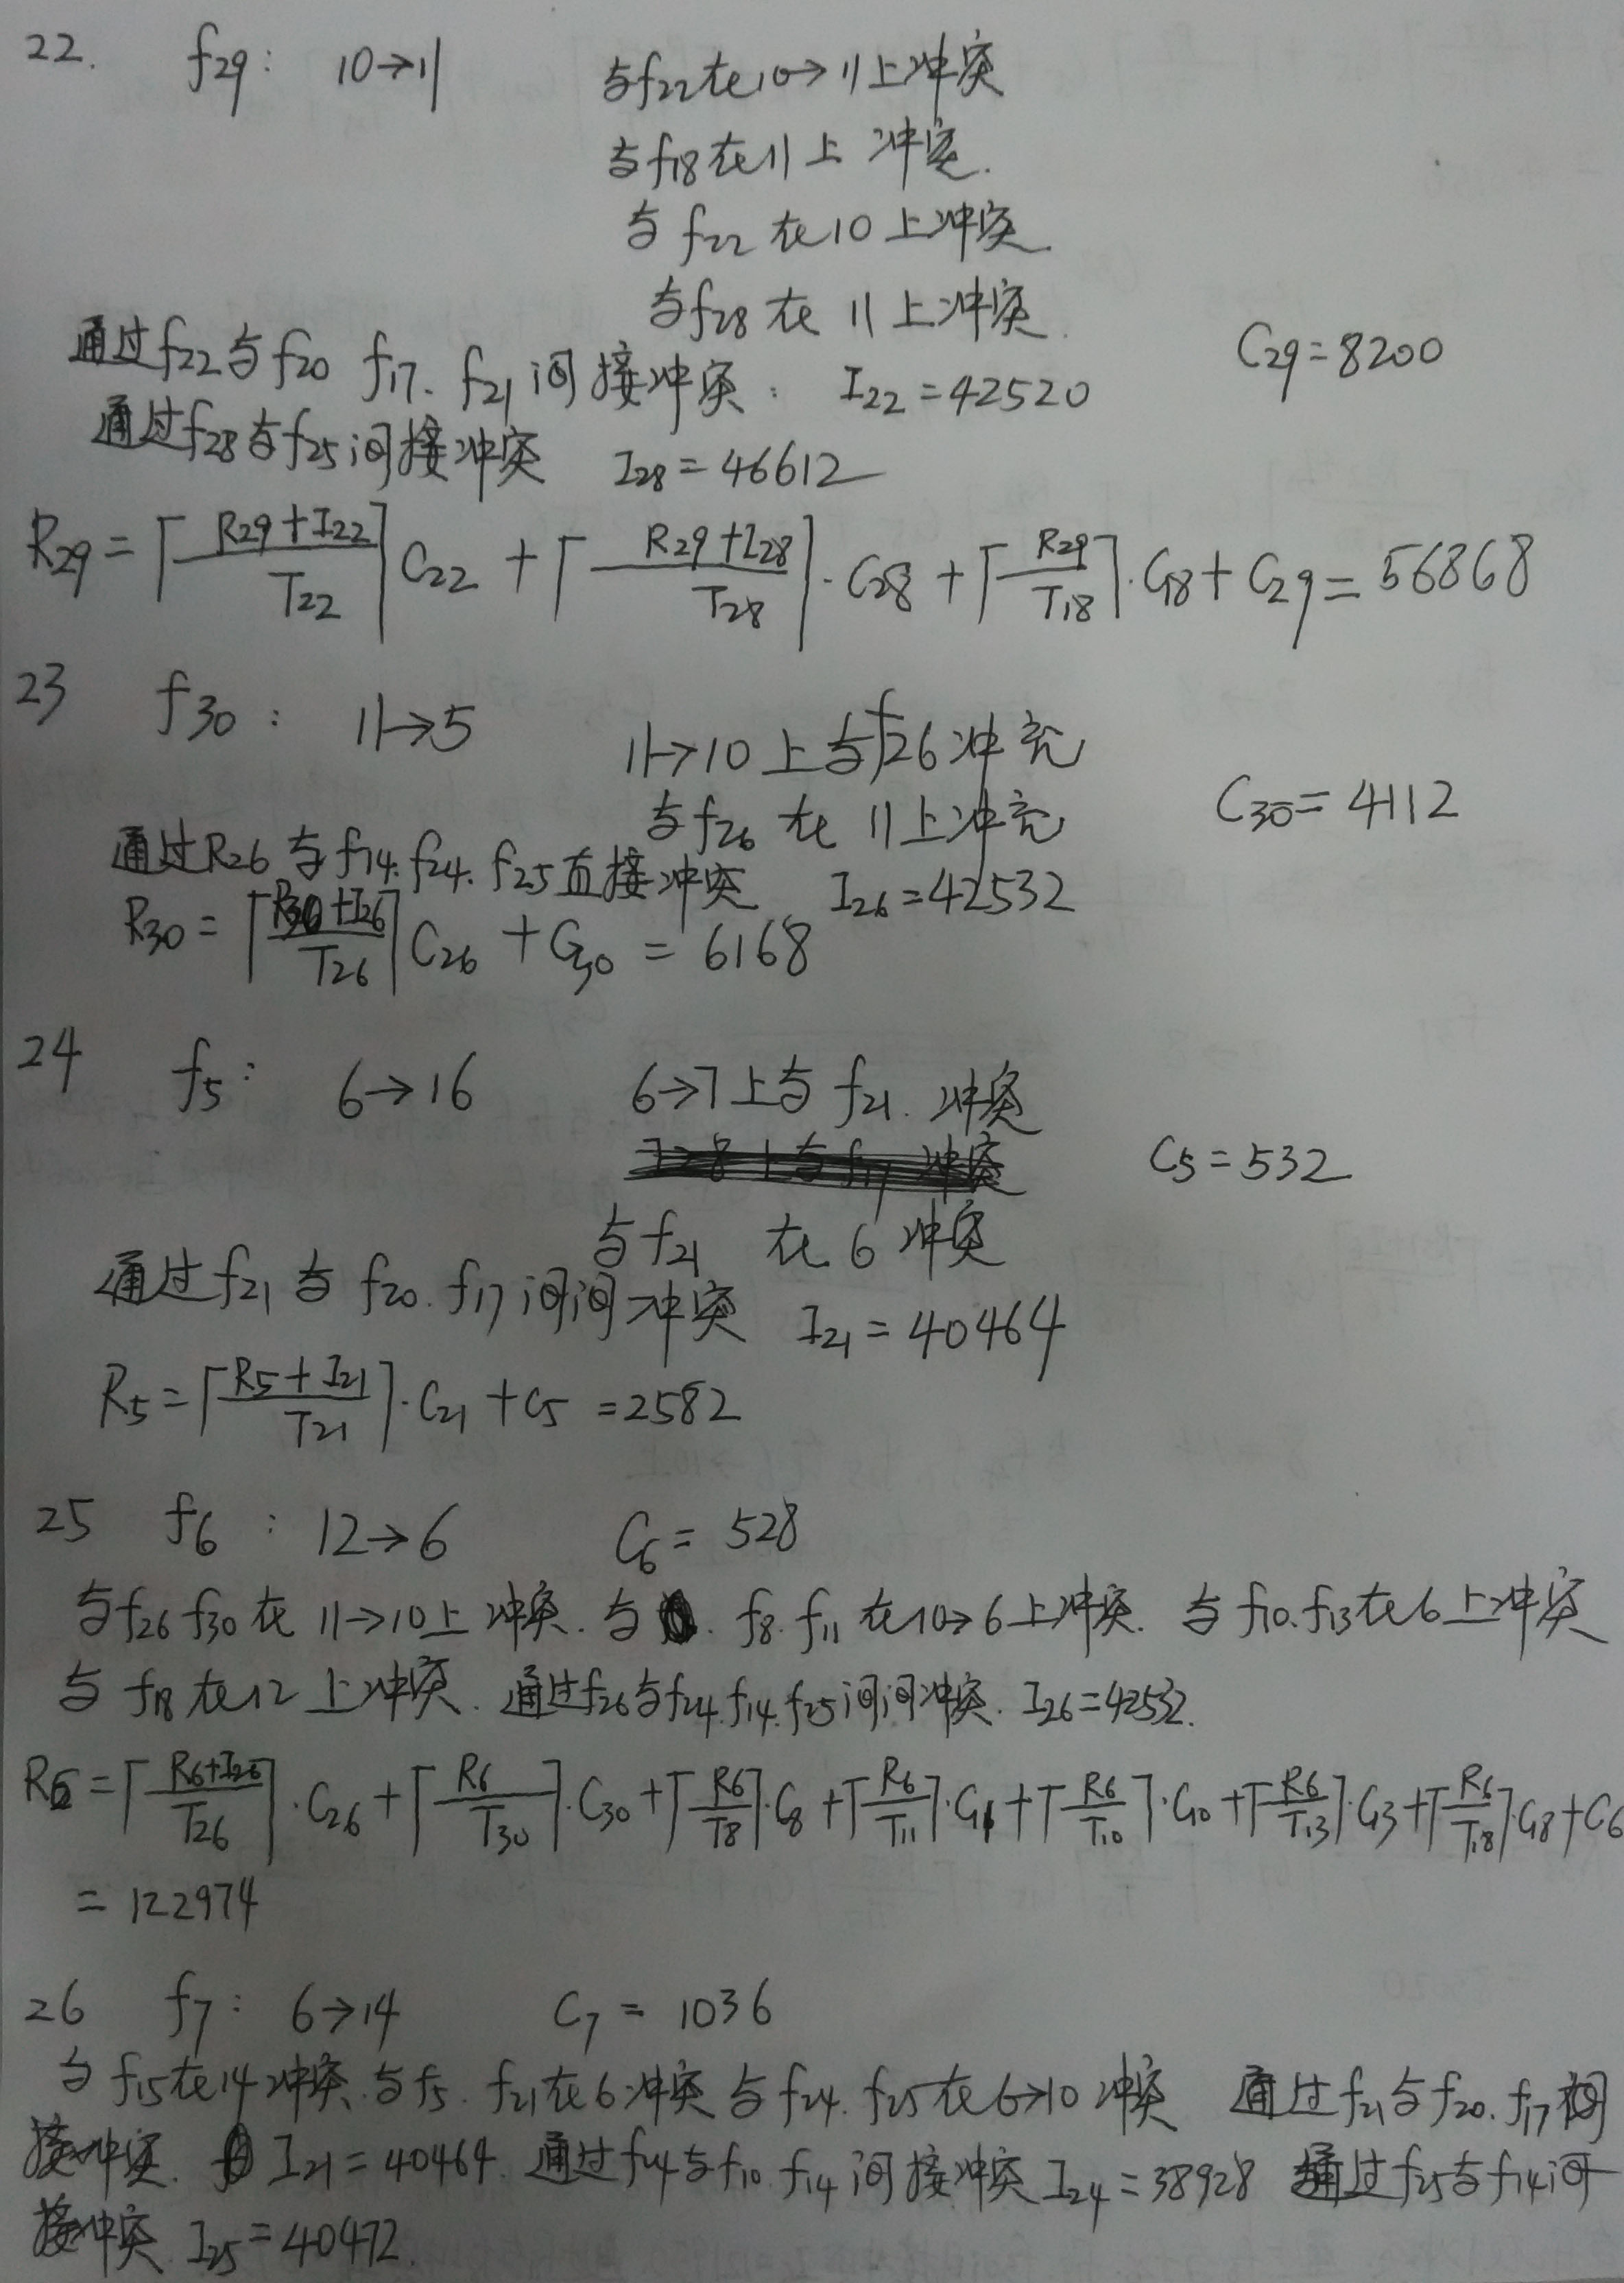 22. f29: 10→11 与f22在10→11上冲突
与f18在11上冲突.
与f22在10上冲突.
与f28在11上冲突.
通过f22与f20 f17. f21间接冲突: I22=42520 C29=8200
通过f28与f25间接冲突 I28=46612
R29=⌈(R29+I22)/T22⌉C22+⌈(R29+I28)/T28⌉·C28+⌈R29/T18⌉·C18+C29=56868
23 f30: 11→5 11→10上与f26冲突
与f26在11上冲突 C30=4112
通过R26与f14.f24.f25直接冲突 I26=42532
R30=⌈(R30+I26)/T26⌉C26+C30=6168
24 f5: 6→16 6→7上与f21.冲突
C5=532
与f21在6冲突
通过f21与f20.f17间间冲突 I21=40464
R5=⌈(R5+I21)/T21⌉·C21+C5=2582
25 f6: 12→6 C6=528
与f26 f30在11→10上冲突.与 f8.f11在10→6上冲突.与f10.f13在6上冲突
与f18在12上冲突.通过f26与f24.f14.f25间间冲突.I26=42532.
R6=⌈(R6+I26)/T26⌉·C26+⌈R6/T30⌉·C30+⌈R6/T8⌉·C8+⌈R6/T11⌉·C11+⌈R6/T10⌉·C10+⌈R6/T13⌉·C13+⌈R6/T18⌉C18+C6
=122974
26 f7: 6→14 C7=1036
与f15在14冲突.与f5.f21在6冲突与f24.f25在6→10冲突 通过f21与f20.f17间
接冲突. I21=40464.通过f24与f10.f14间接冲突I24=38928 通过f25与f14间
接冲突.I25=40472.